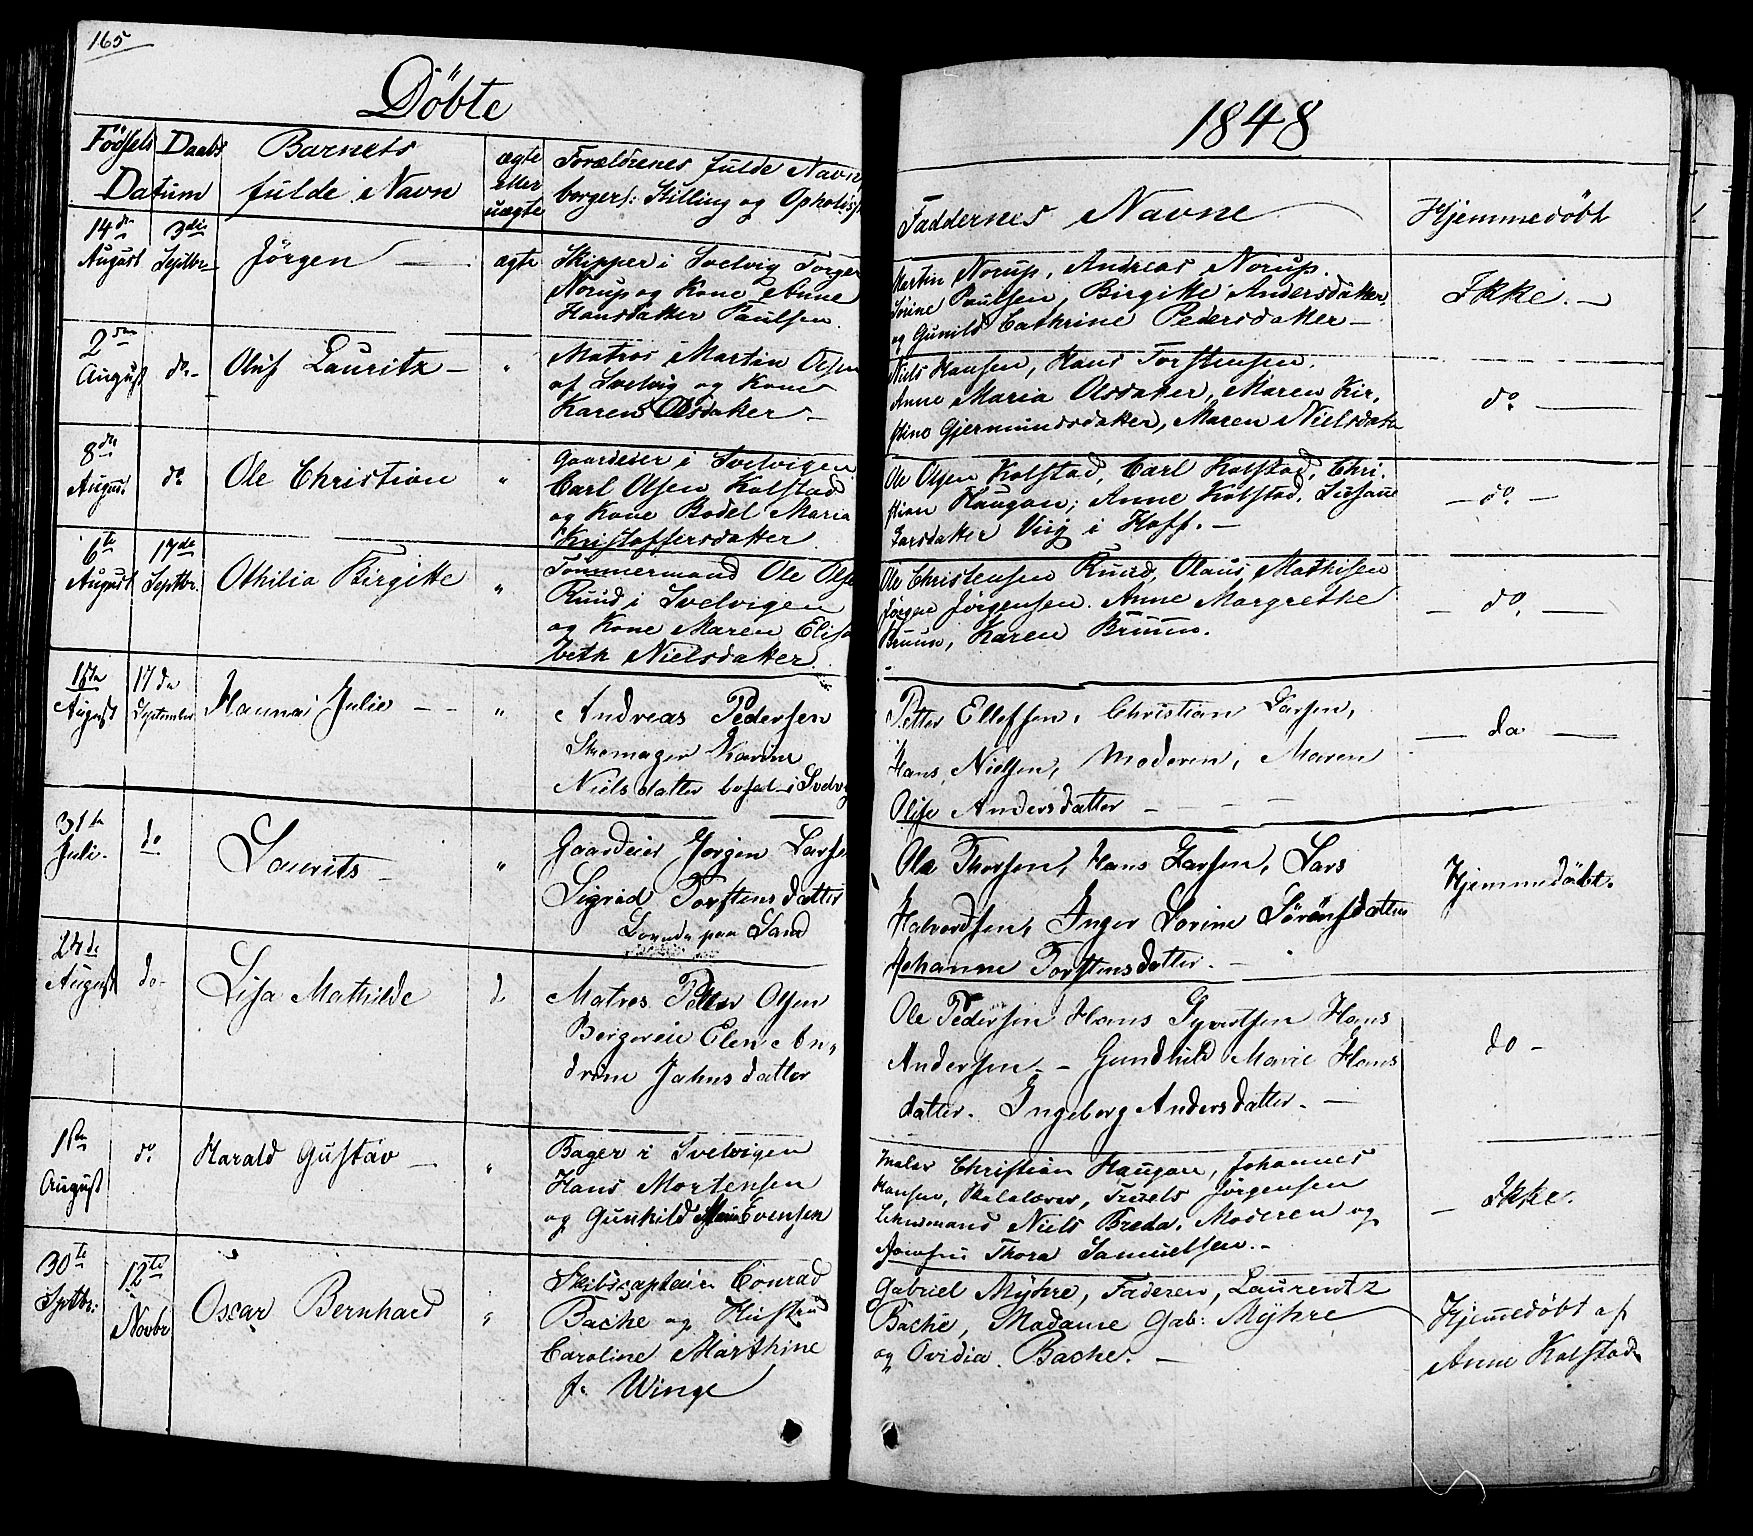 165
Döbte
1848
Födsels Daabs Barnets ægte Forældrenes fulde Navne,
Datum fulde Navn eller borgerl: Stilling og Opholdsst
uægte
Faddernes Navne Hjemmedöbt
14de August 3die Septbr. Jörgen — ægte
Skipper i Svelvig Torger
Norup og Kone Anne
Hansdatter Paulsen.
Martin Norup, Andreas Norup.
Sörine Paulsen, Birgitte Andersdatter,
og Gunild Cathrine Pedersdatter —
Ikke. —
2den August do. Oluf Lauritz — "
Matros Martin Olsen
af Svelvig og Kone
Karen Olsdatter —
Niels Hansen, Hans Torstensen.
Anne Maria Olsdatter, Maren Kir,
stine Gjermundsdatter, Maren Nielsdatr
do —
8de August. do Ole Christian "
Gaardeier i Svelvigen
Carl Olsen Kolstad
og Kone Bodel Maria
Kristoffersdatter
Ole Olsen Kolstad, Carl Kolstad, Chri-
stian Haugan; Anne Kolstad, Susane
Larsdatter Viig i Hoff. —
— do —
6te August 17de Septbr. Othilia Birgitte "
Tömmermand Ole Olse
Ruud i Svelvigen
og Kone Maren Elisa
beth Nielsdatter.
Ole Christensen Ruud, Olaus Mathisen
Jörgen Jörgensen. Anne Margrethe
Bruun, Karen Bruun.
— do. —
August 17da September Hanna Julie - - "
Andreas Pedersen
Skomager Karine
Nielsdatter bosat i Svelvig
Petter Ellefsen, Christian Larsen,
Hans Nielsen, Moderen, Maren
Olise Andersdatter - - - -
— do —
31te Juli. do Laurits — "
Gaardeier Jörgen Larse
Sigrid Torstensdatter
paa Sand
Ole Thorsen, Hans Larsen, Lars
Halvordsen, Inger Sorine Sörensdatter
Johanne Torstensdatter. —
Hjemmedöbt.
24de August do- Lisa Mathilde
Matros Petter Olsen
Bergereie Elen An,,
drine Jahnsdatter
Ole Pedersen Hans Syvertsen Hans
Andersen — Gundhild Marie Hans
datter. Ingeborg Andersdatter. —
do -
1ste August do. Harald Gustav — "
Bager i Svelvigen
Hans Mortensen
og Gunhild Marie Evensen
Maler Christian Haugan, Johannes
Hansen, Skolelærer, Troels Jörgensen
Niels Breda. Moderen og
Jomfru Thora Samuelsen. -
— Ikke.
30te Septbr: 12te Novbr Oscar Bernhard "
Skibscaptain Conrad
Bache og Hustru
Caroline Marthine
f. Winge
Gabriel Myhre, Faderen, Laurentz
Bache, Madame Gab: Myhre
og Ovidia Bache. —
Hjemedöbt af
Anne Kolstad